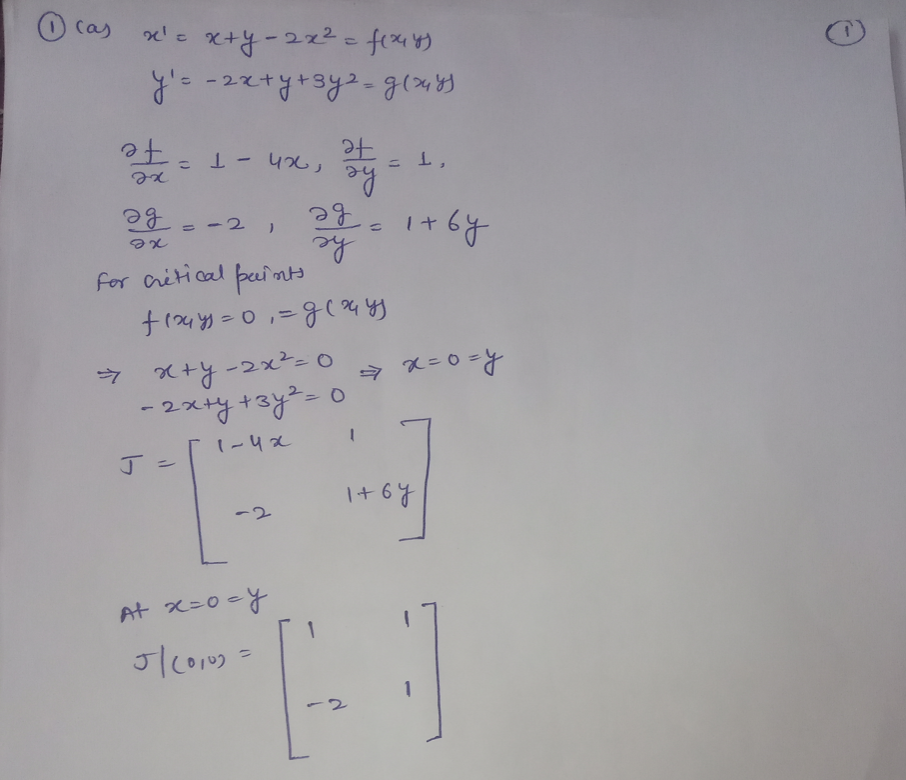 ① (a) x' = x+y-2x² = f(x,y) ①
y' = -2x+y+3y² = g(x,y)
∂f/∂x = 1-4x, ∂f/∂y = 1,
∂g/∂x = -2, ∂g/∂y = 1+6y
For critical points
f(x,y) = 0, = g(x,y)
⇒ x+y-2x² = 0 ⇒ x=0=y
-2x+y+3y² = 0
J = [ 1-4x 1
-2 1+6y ]
At x=0=y
J|(0,0) = [ 1 1
-2 1 ]